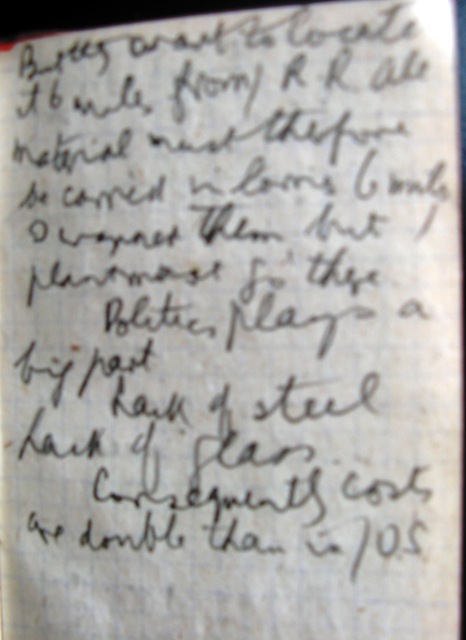 want to locate
it 6 miles from R R All
material must therefore
be carried in lorries 6 miles
them but
plant must go there
Politics plays a
big part
Lack of steel
Lack of glass.
Consequently costs
are double than in